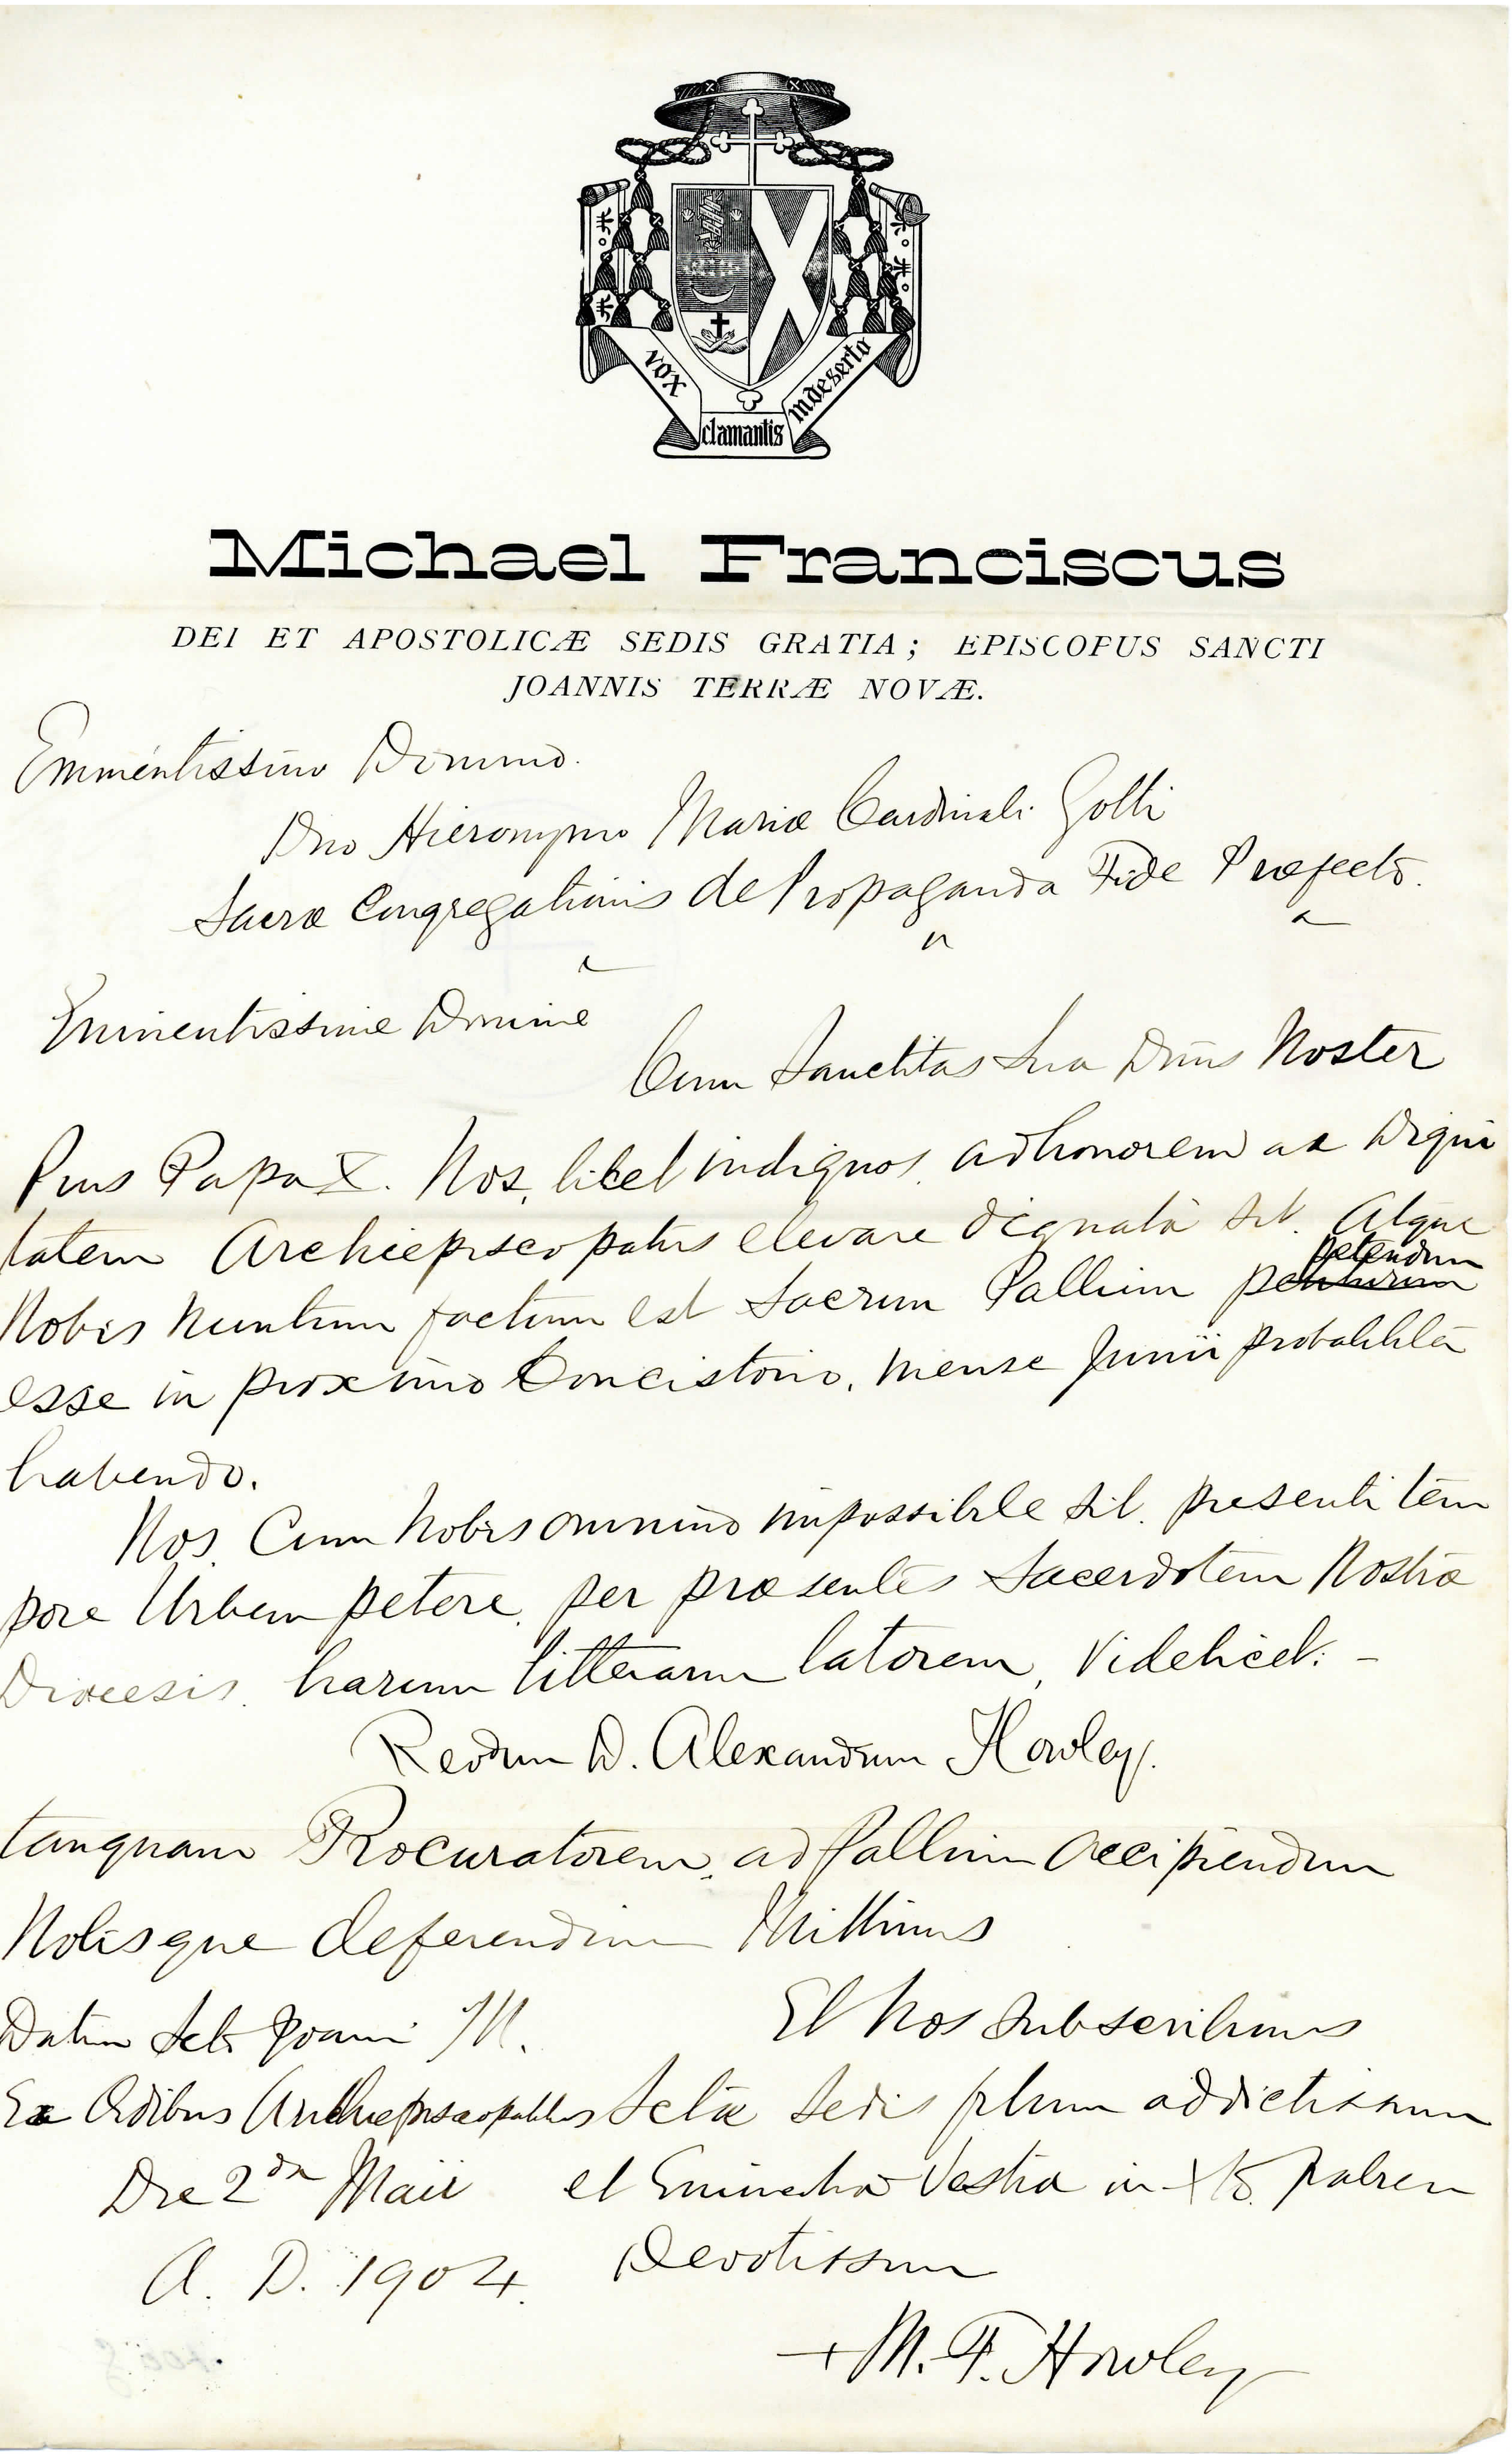 vox
clamantis
in deserto
Michael Franciscus
DEI ET APOSTOLICÆ SEDIS GRATIA; EPISCOPUS SANCTI
JOANNIS TERRÆ NOVÆ.
Emmentissimo Domino.
Dno Hieronymo Mariæ Cardinali Gotti
Sacræ Congregationis de Propaganda Fide Præfecto.
Eminentissime Domine
Cum Sanctitas Sua Dnūs Noster
Pius Papa X. Nos, licet indignos, ad honorem ac Digni
tatem Archiepiscopatus elevare dignata sit. Atque
petendum
Nobis nuntium factum est Sacrum Pallium
esse in proximo Concistorio, mense Junii probabiliter
habendo.
Nos, Cum Nobis omnino impossibile sit, presenti tem
pore Urbem petere, per præsentes Sacerdotem Nostræ
Diocesis, harum litterarum latorem, Videlicet: -
Revdum D. Alexandrum Howley.
tanquam Procuratorem, ad Pallium accipiendum
Nobisque deferendum Mittimus
Et Nos subscribimus
Datum Scti Joanni
Ex Ædibus Archiepiscopalibus
Die 2da Maii
A. D. 1904.
Sctæ Sedis filium addictissimum
et Eminentiæ Vestræ in Xto patrem
Devotissum
+ M. F. Howley